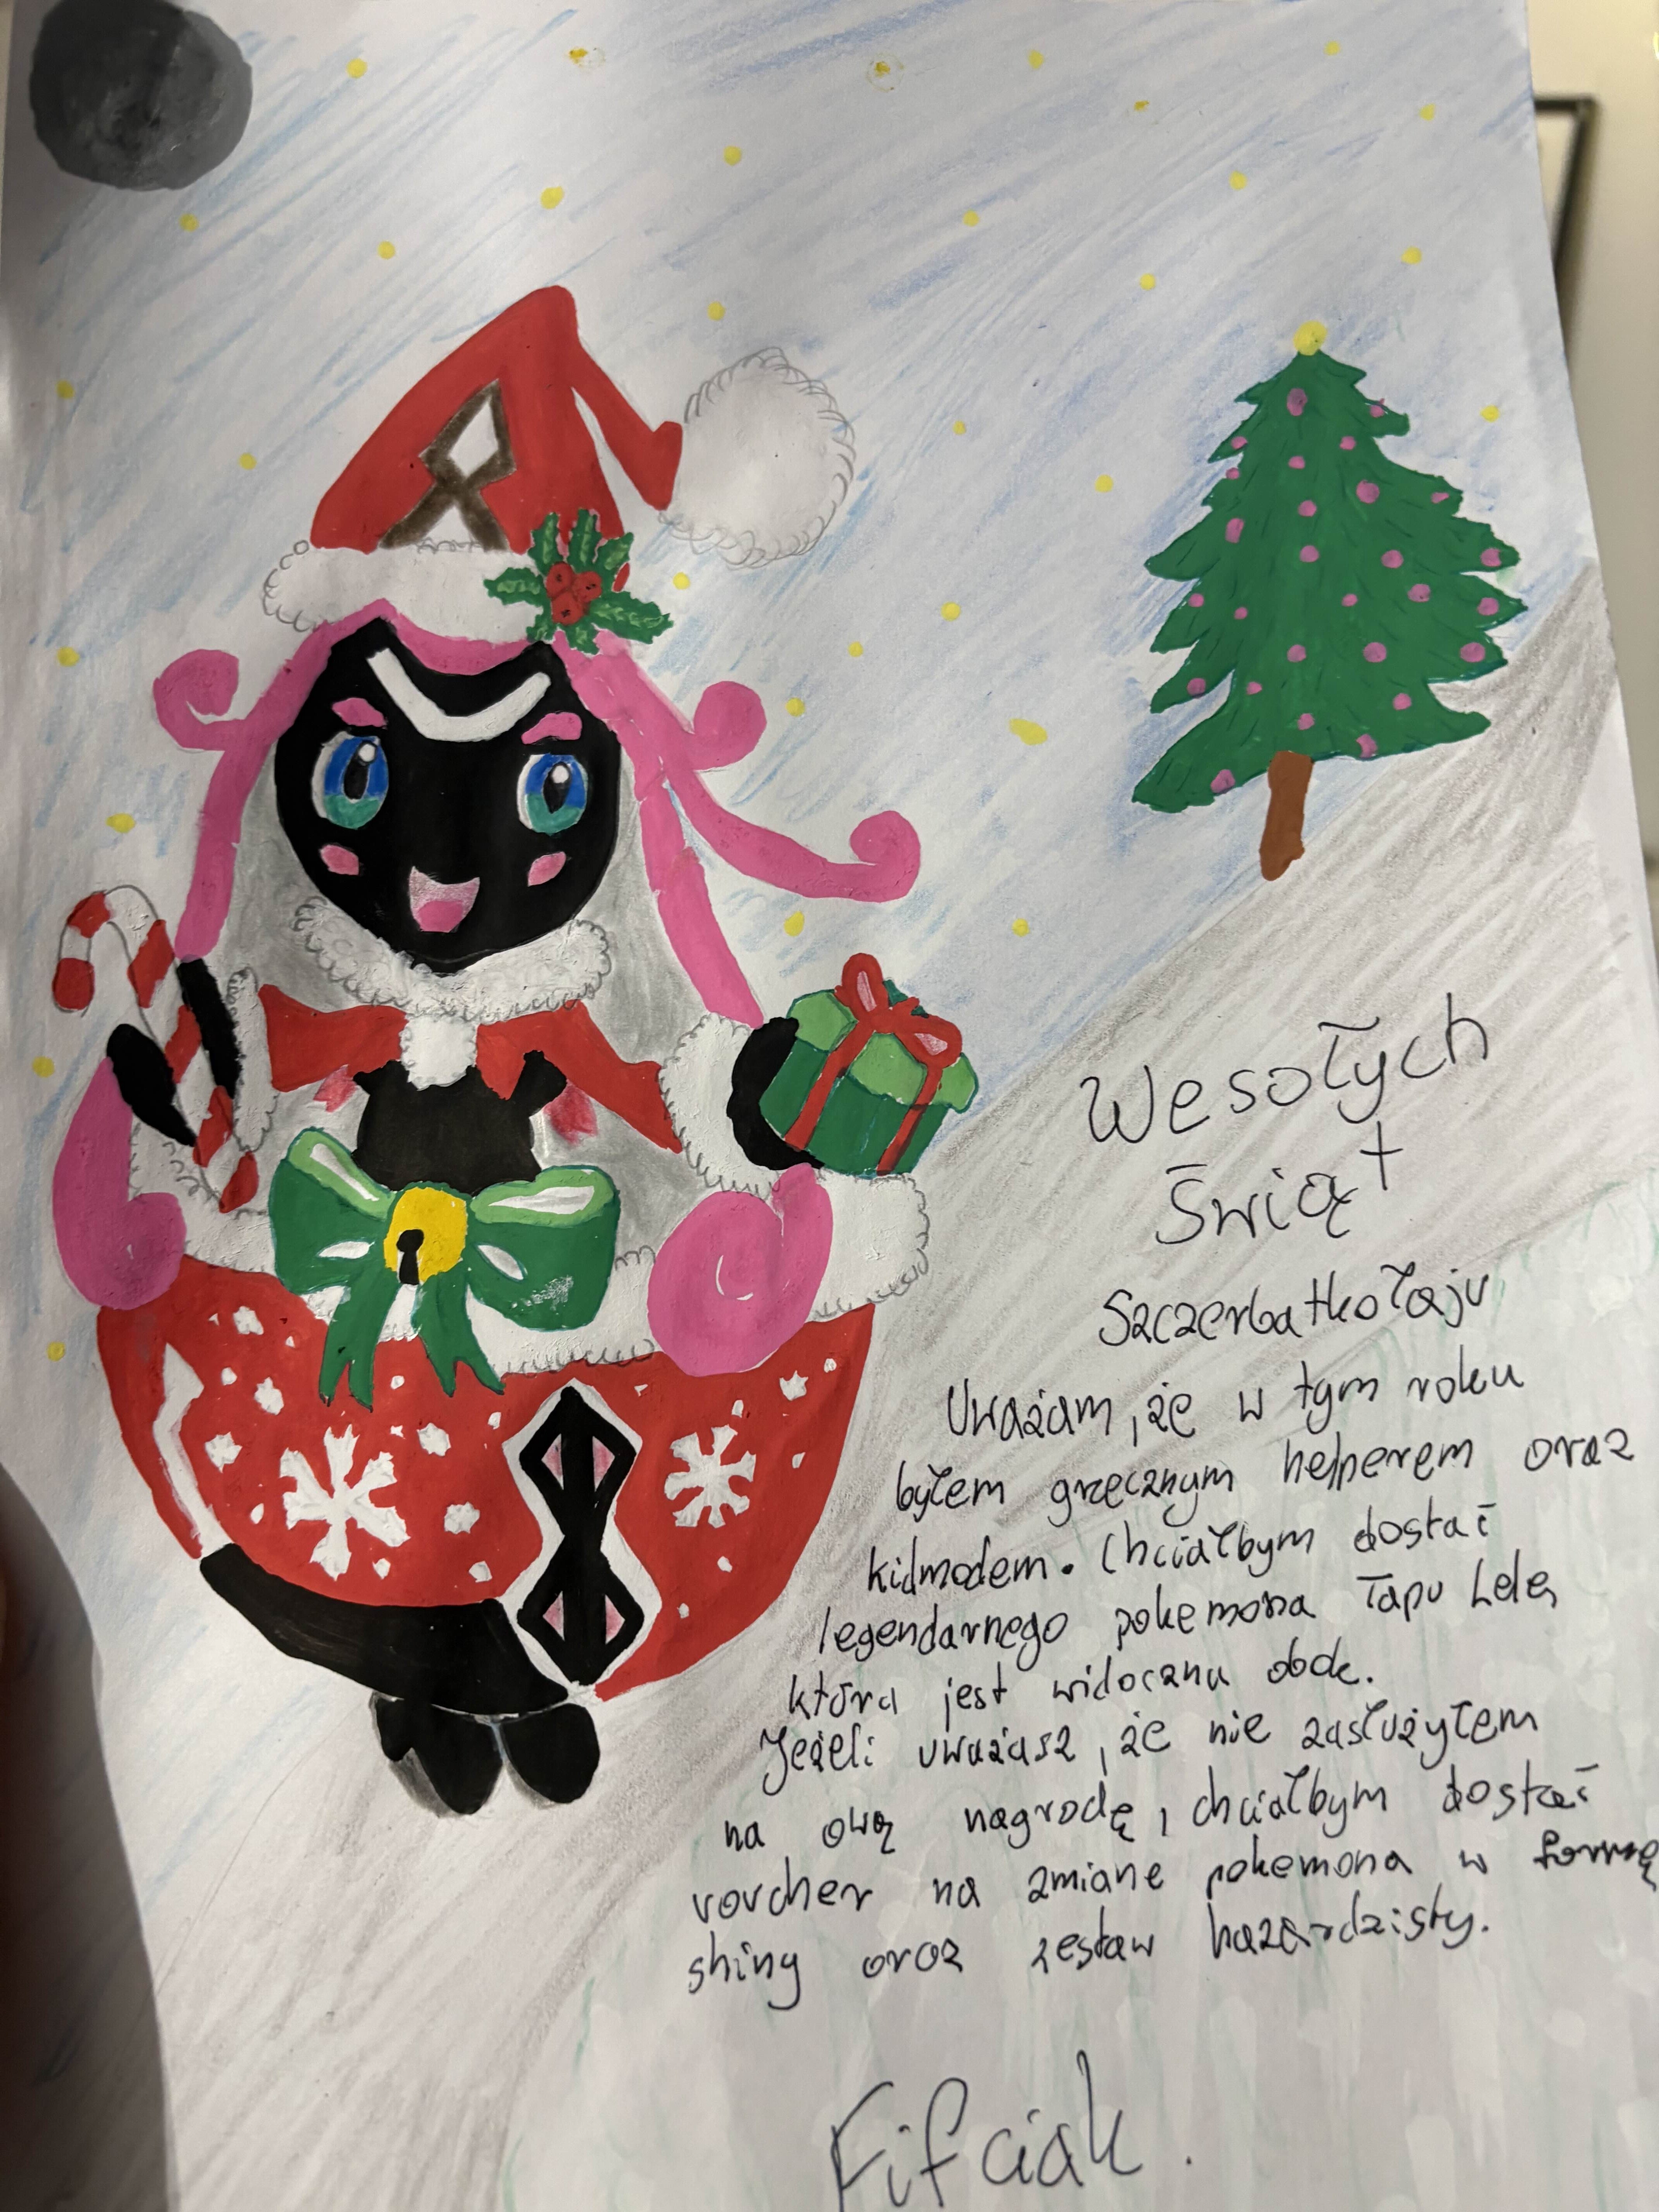 Wesołych
Świąt
Szczerbatkołaju
Uważam, że w tym roku
byłem grzecznym helperem oraz
kidmodem. Chciałbym dostać
legendarnego pokemona Tapu Lele,
która jest widoczna obok.
Jeżeli uważasz, że nie zasłużyłem
na ową nagrodę, chciałbym dostać
voucher na zmianę pokemona w formę
shiny oraz zestaw hazardzisty.
Fifciak.